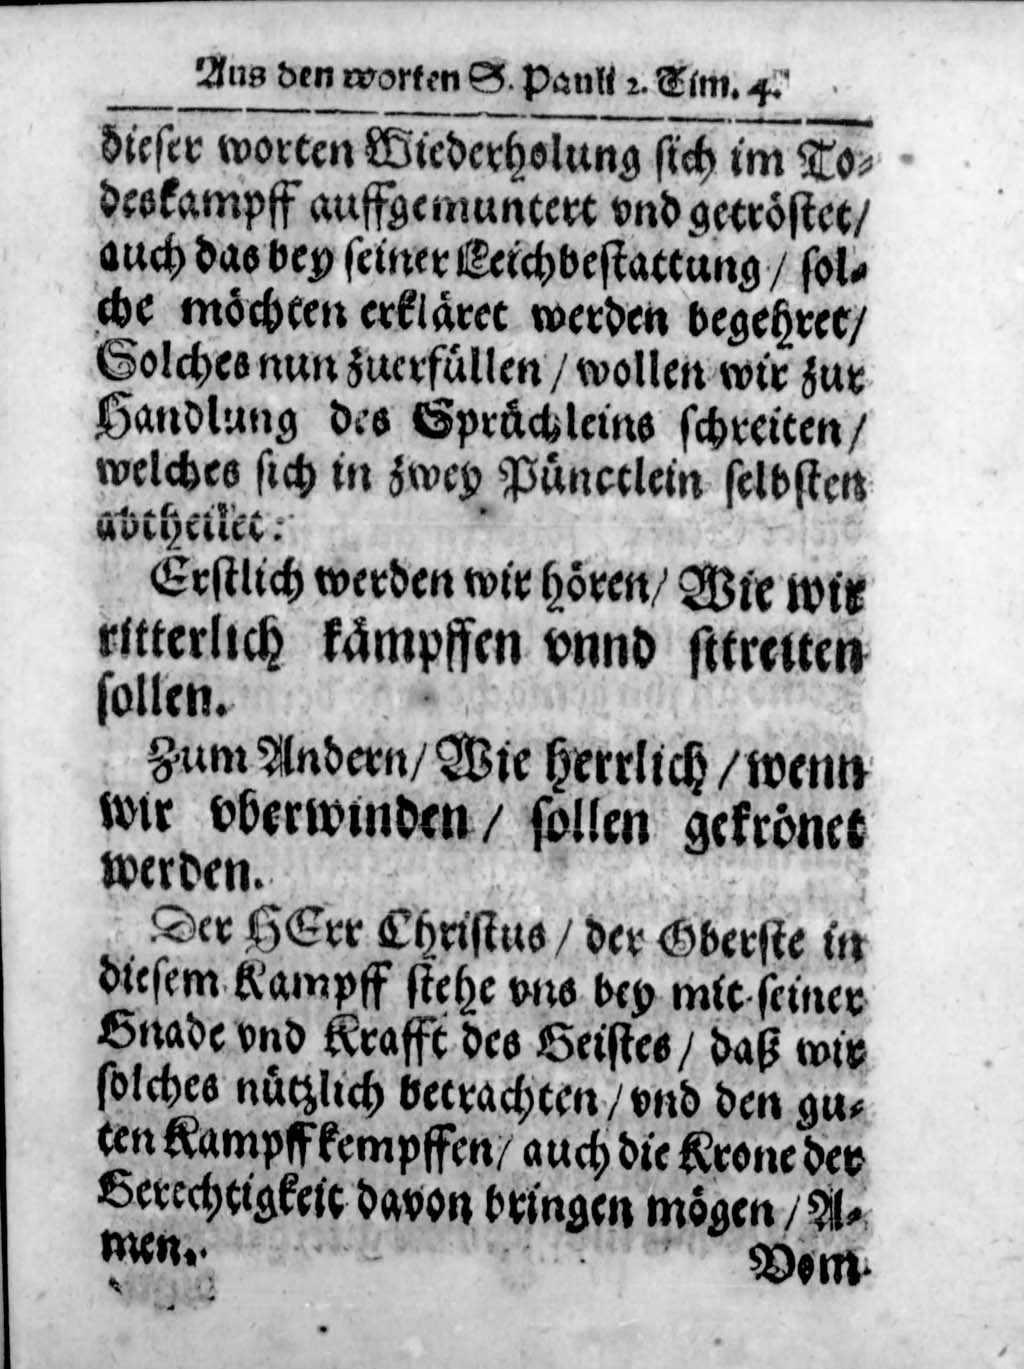 Aus den worten S. Pauli 2. Tim. 4.
dieser worten Wiederholung sich im To-
deskampff auffgemuntert vnd getröstet/
auch das bey seiner Leichbestattung / sol-
che möchten erkläret werden begehret/
Solches nun zuerfüllen / wollen wir zur
Handlung des Sprüchleins schreiten /
welches sich in zwey Pünctlein selbsten
abtheilet:
Erstlich werden wir hören/ Wie wir
ritterlich kämpffen vnnd sttreiten
sollen.
Zum Andern/ Wie herrlich / wenn
wir vberwinden / sollen gekrönet
werden.
Der HErr Christus / der Oberste in
diesem Kampff stehe vns bey mit seiner
Gnade vnd Krafft des Geistes / daß wir
solches nützlich betrachten / vnd den gu-
ten Kampff kempffen/ auch die Krone der
Gerechtigkeit davon bringen mögen / A-
men.
Vom